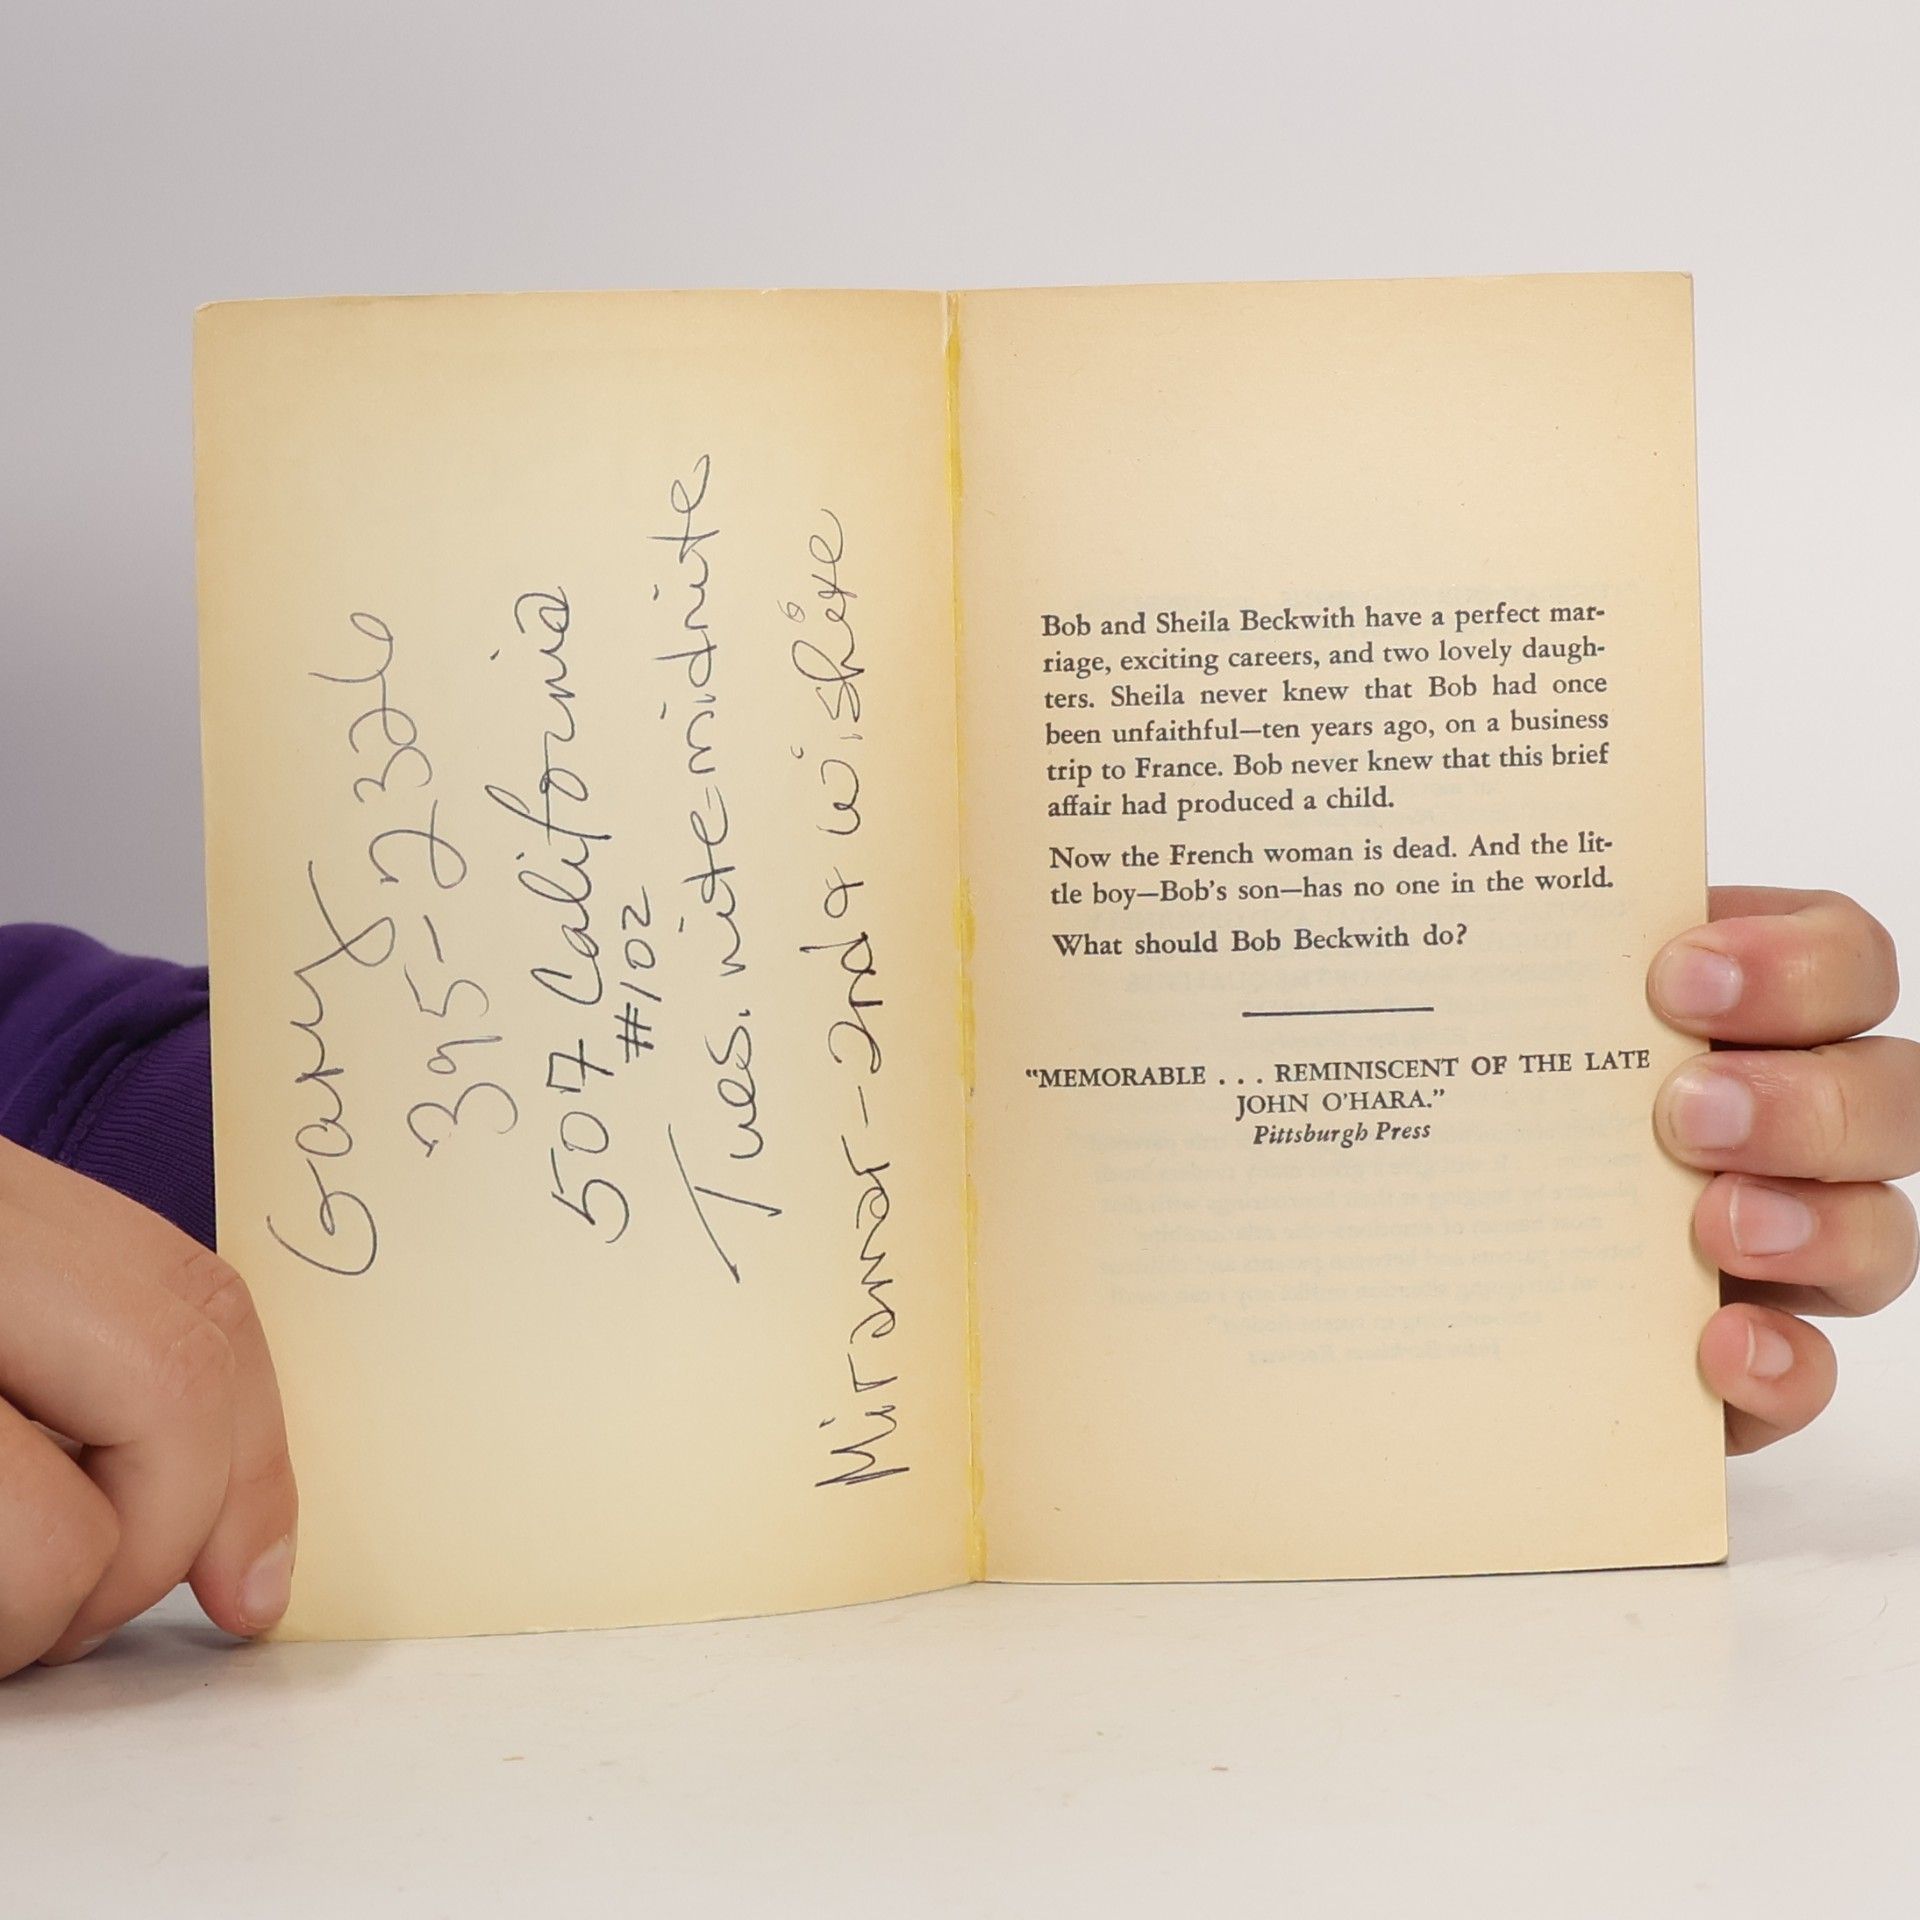 Gary
395-2326
507 California
#102
Tues. nite-midnite
Miramar-2nd & Wilshire
Bob and Sheila Beckwith have a perfect mar-
riage, exciting careers, and two lovely daugh-
ters. Sheila never knew that Bob had once
been unfaithful—ten years ago, on a business
trip to France. Bob never knew that this brief
affair had produced a child.
Now the French woman is dead. And the lit-
tle boy—Bob's son—has no one in the world.
What should Bob Beckwith do?
"MEMORABLE . . . REMINISCENT OF THE LATE
JOHN O'HARA."
Pittsburgh Press